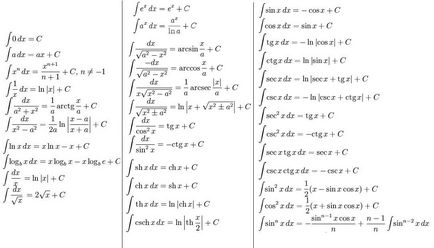 ∫0 dx = C
∫a dx = ax + C
∫xⁿ dx = xⁿ⁺¹/(n+1) + C, n ≠ −1
∫1/x dx = ln |x| + C
∫dx/(a² + x²) = 1/a arctg x/a + C
∫dx/(x² − a²) = 1/2a ln |(x − a)/(x + a)| + C
∫ln x dx = x ln x − x + C
∫log_b x dx = x log_b x − x log_b e + C
∫dx/x = ln |x| + C
∫dx/√x = 2√x + C
∫eˣ dx = eˣ + C
∫aˣ dx = aˣ/ln a + C
∫dx/√(a² − x²) = arcsin x/a + C
∫−dx/√(a² − x²) = arccos x/a + C
∫dx/(x√(x² − a²)) = 1/a arcsec |x|/a + C
∫dx/√(x² ± a²) = ln |x + √(x² ± a²)| + C
∫dx/cos² x = tg x + C
∫dx/sin² x = −ctg x + C
∫sh x dx = ch x + C
∫ch x dx = sh x + C
∫th x dx = ln |ch x| + C
∫csch x dx = ln |th x/2| + C
∫sin x dx = − cos x + C
∫cos x dx = sin x + C
∫tg x dx = − ln |cos x| + C
∫ctg x dx = ln |sin x| + C
∫sec x dx = ln |sec x + tg x| + C
∫csc x dx = − ln |csc x + ctg x| + C
∫sec² x dx = tg x + C
∫csc² x dx = −ctg x + C
∫sec x tg x dx = sec x + C
∫csc x ctg x dx = − csc x + C
∫sin² x dx = 1/2(x − sin x cos x) + C
∫cos² x dx = 1/2(x + sin x cos x) + C
∫sinⁿ x dx = − sinⁿ⁻¹ x cos x/n + (n − 1)/n ∫sinⁿ⁻² x dx